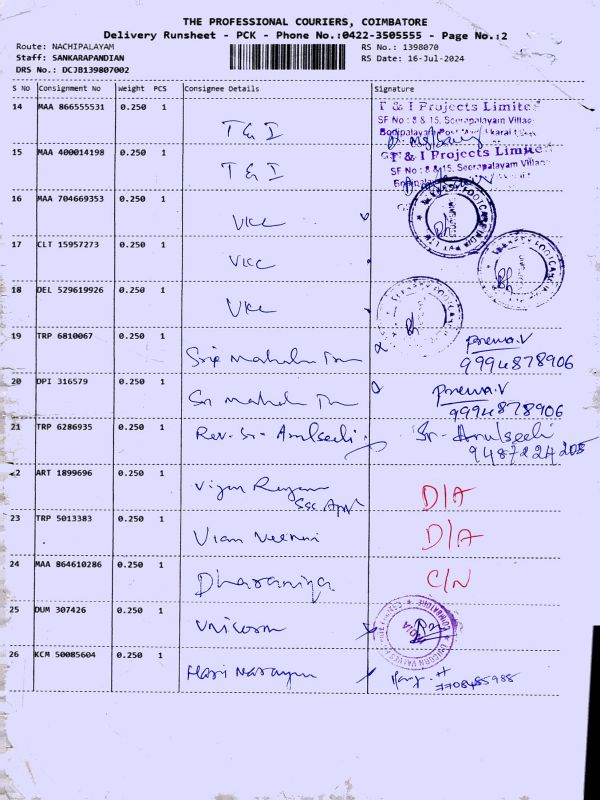 THE PROFESSIONAL COURIERS, COIMBATORE
Delivery Runsheet - PCK - Phone No.:0422-3505555 - Page No.:2
Route: NACHIPALAYAM RS No.: 1398070
Staff: SANKARAPANDIAN RS Date: 16-Jul-2024
DRS No.: DCJB139807002
S No Consignment No Weight PCS Consignee Details Signature
14 MAA 866555531 0.250 1 T & I
T & I Projects Limited
SF No : 8 & 15, Seerapalayam Village
15 MAA 400014198 0.250 1 T & I
T & I Projects Limite
SF No : 8 & 15, Seerapalayam Village
16 MAA 704669353 0.250 1 VKC
17 CLT 15957273 0.250 1 VKC
18 DEL 529619926 0.250 1 VKC
19 TRP 6810067 0.250 1 Prema.V
9994878906
20 DPI 316579 0.250 1 Sri Prema.V
9994878906
21 TRP 6286935 0.250 1 Rev. Sr. Arulseeli Sr. Arulseeli
22 ART 1899696 0.250 1 D/A
23 TRP 5013383 0.250 1 D/A
24 MAA 864610286 0.250 1 Dharaniya C/N
25 DUM 307426 0.250 1 Unicorn
26 KCM 50085604 0.250 1 Hari Narayan
7708485988